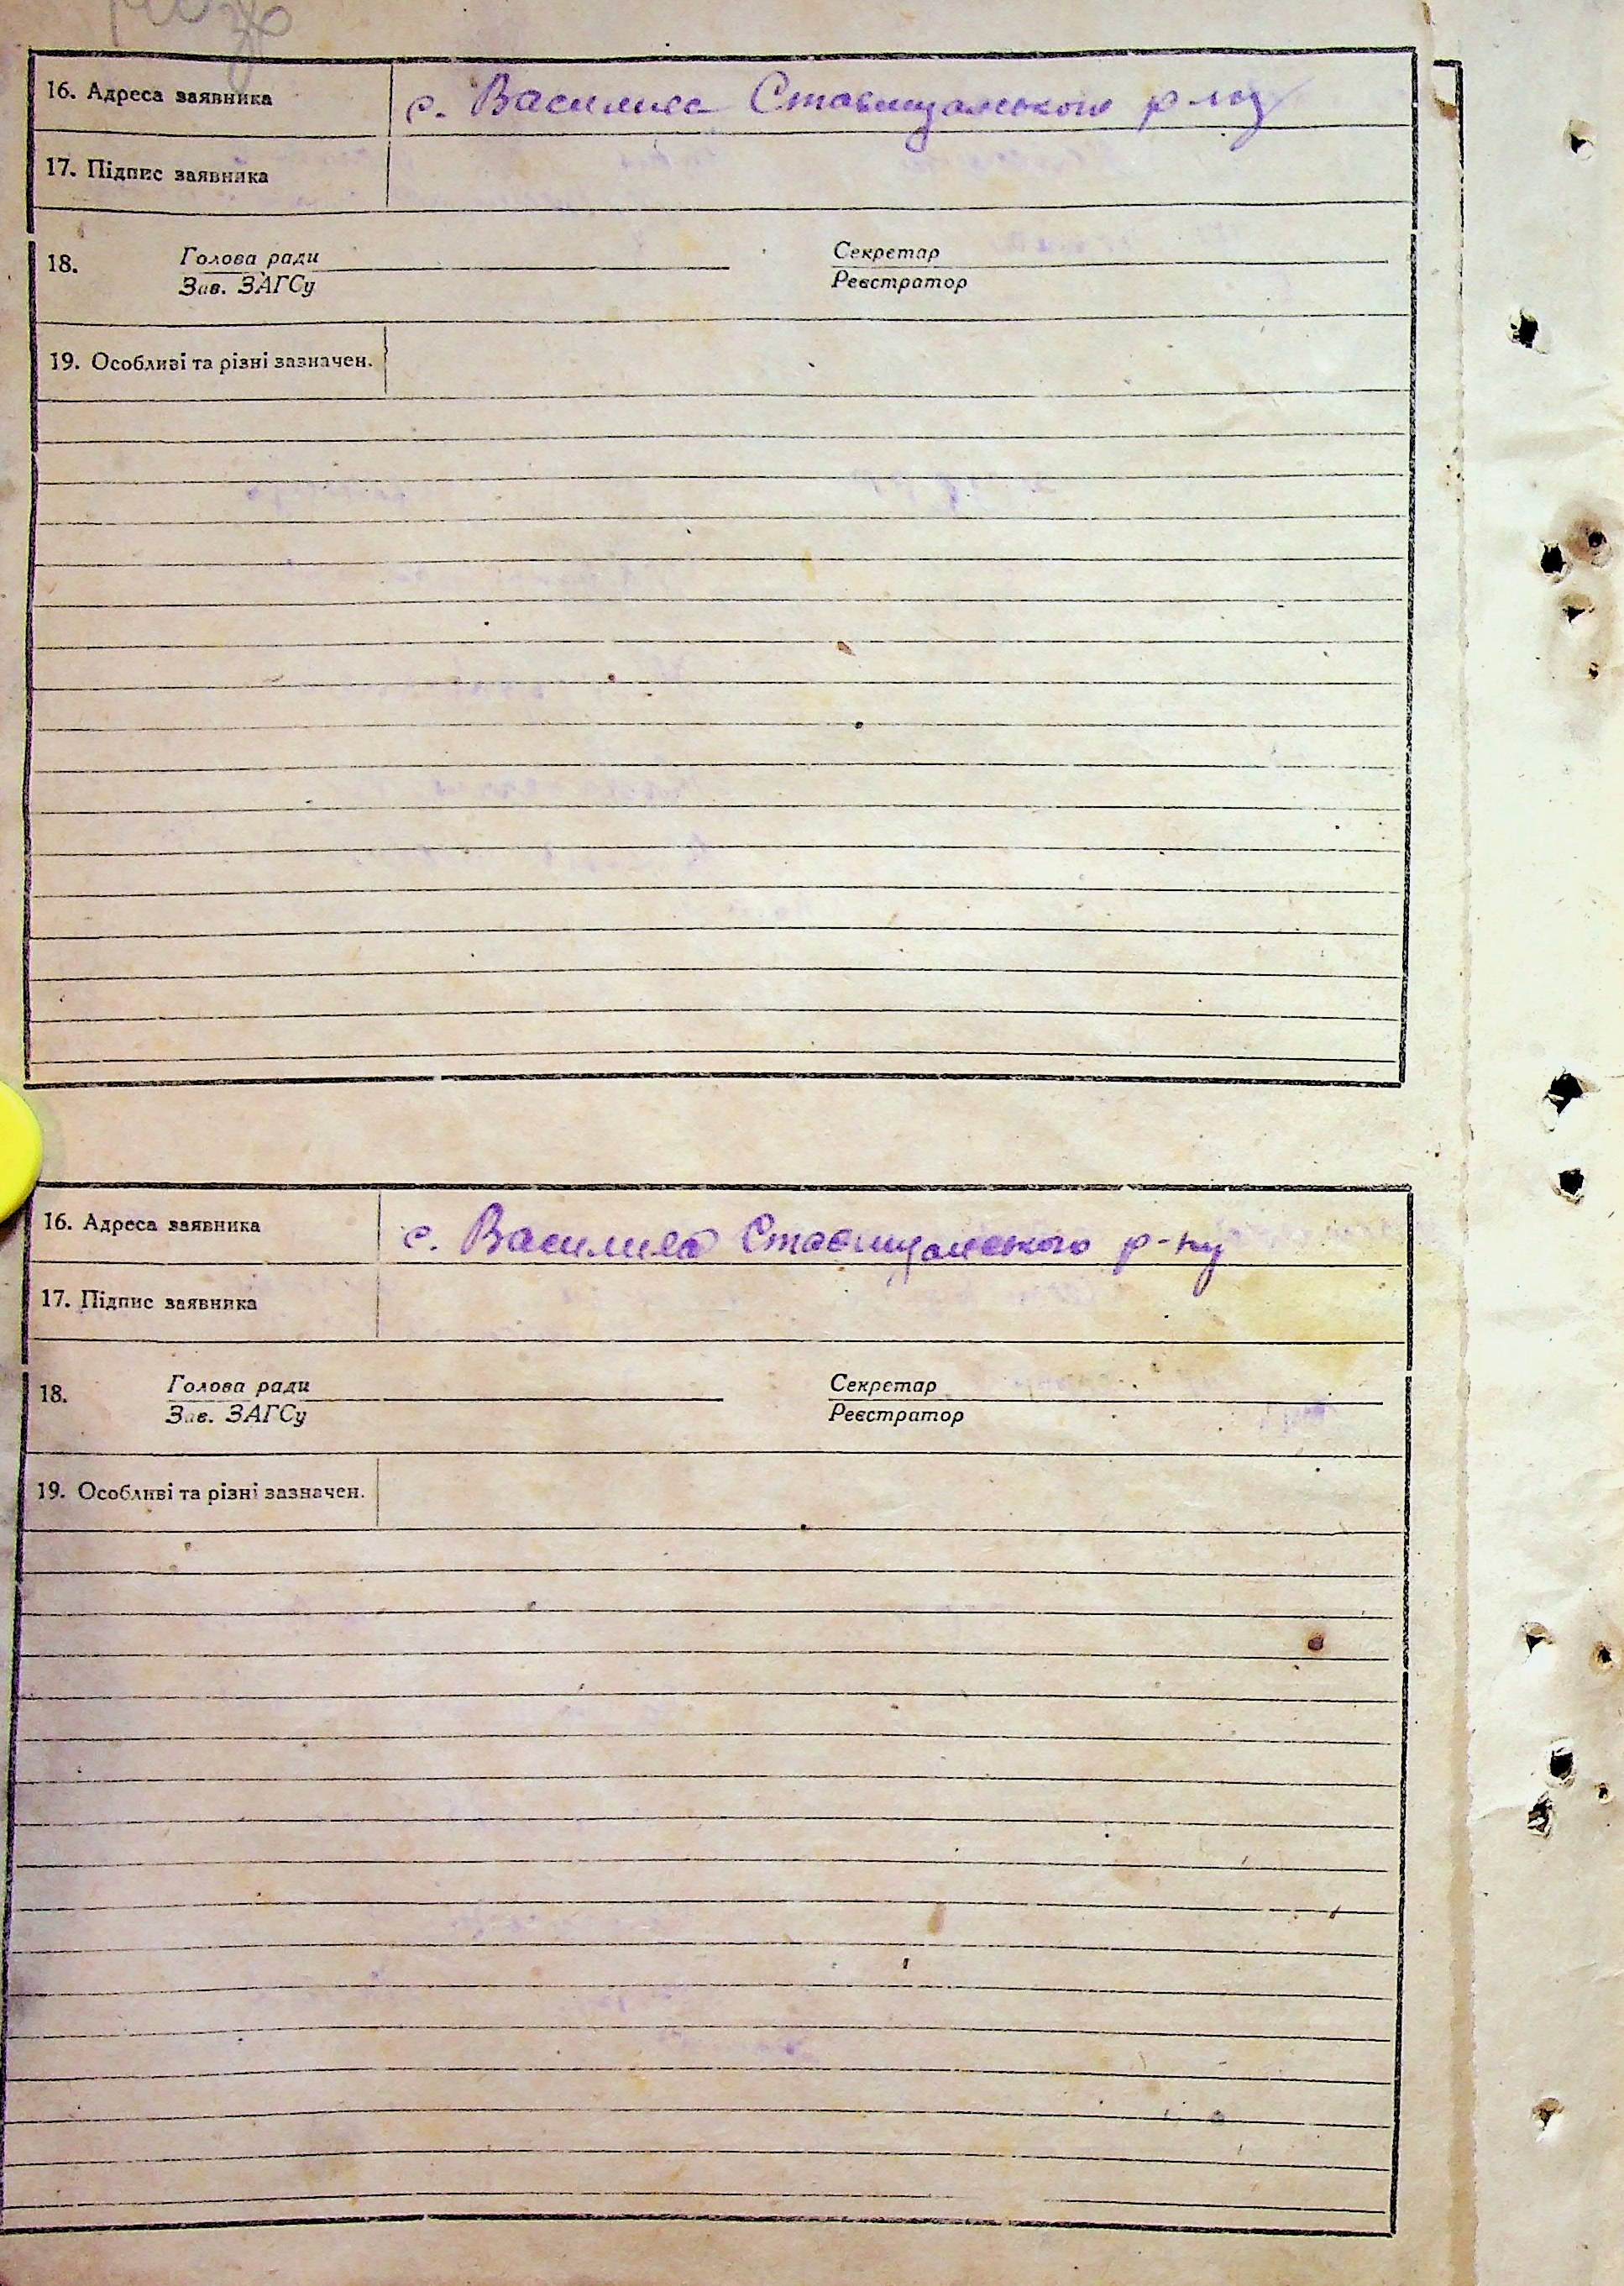 16. Адреса заявника с. Василиха Ставищанського р-ну
17. Підпис заявника
18. Голова ради Секретар
Зав. ЗАГСу Реєстратор
19. Особливі та різні зазначен.
16. Адреса заявника с. Василиха Ставищанського р-ну
17. Підпис заявника
18. Голова ради Секретар
Зав. ЗАГСу Реєстратор
19. Особливі та різні зазначен.